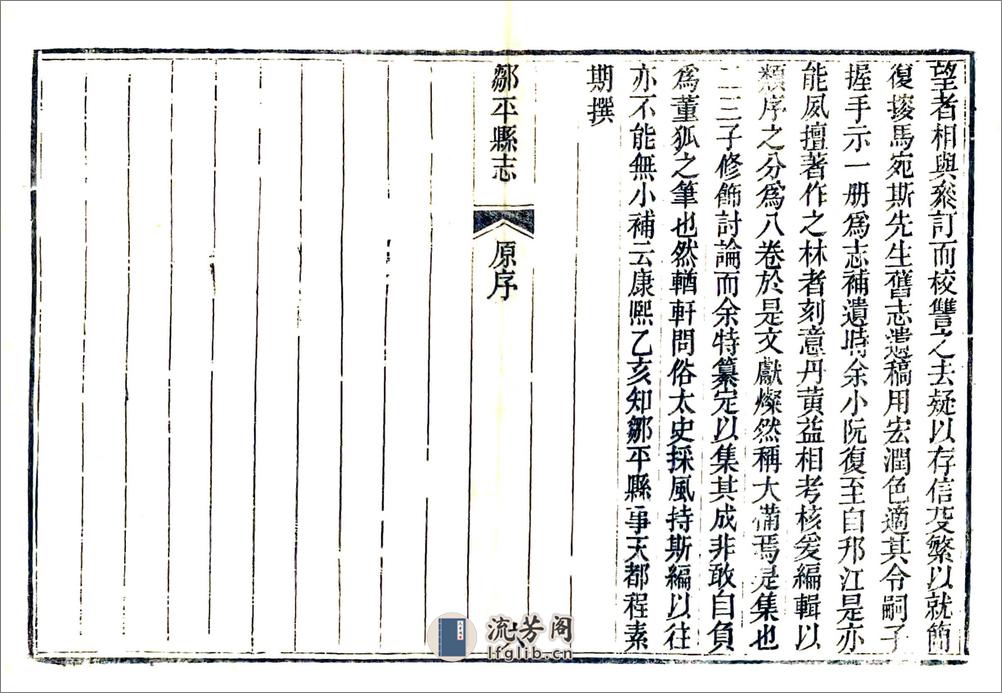 望者相與叅訂而校讐之去疑以存信芟繁以就簡
復接馬宛斯先生舊志遺稿用宏潤色適其令嗣子
握手示一册爲志補遺時余小阮復至自邗江是亦
能夙擅著作之林者刻意丹黄益相考核爰編輯以
類序之分爲八卷於是文獻燦然稱大備焉是集也
二三子修飾討論而余特纂定以集其成非敢自負
爲董狐之筆也然輶軒問俗太史採風持斯編以往
亦不能無小補云康熙乙亥知鄒平縣事天都程素
期撰
鄒平縣志
原序
流芳阁
lfglib.cn